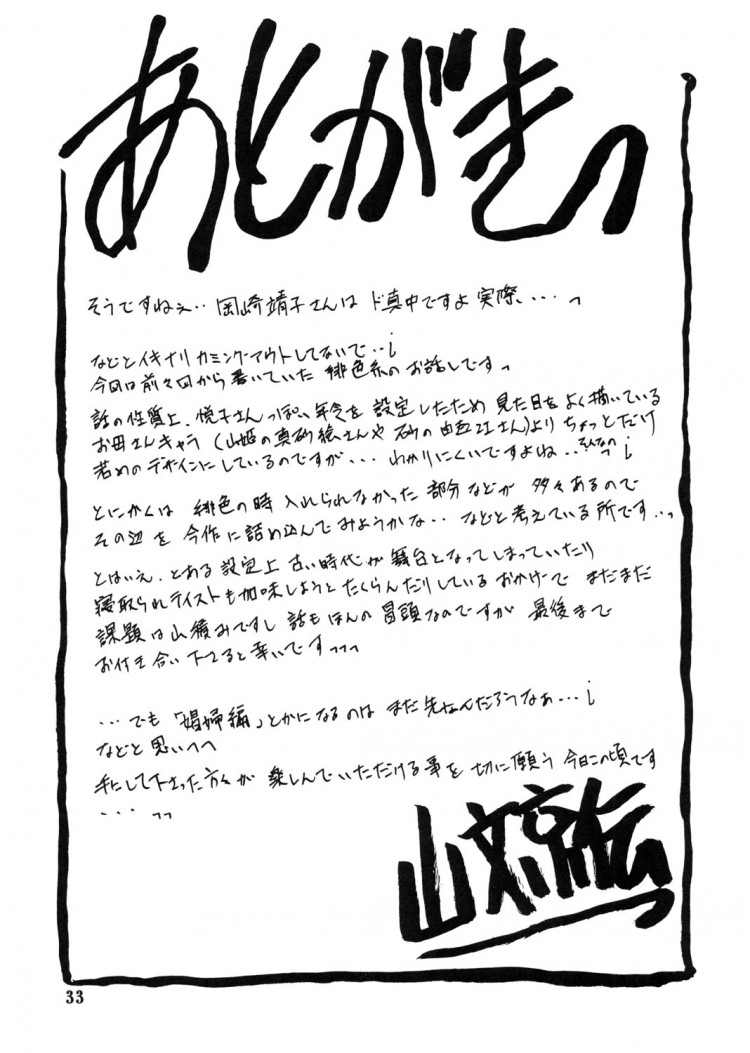 あとがきっ
そうですねぇ・・岡崎靖子さんは ド真中ですよ 実際、・・・っ
などと イキナリ カミングアウトしてないで・・¡
今回は前々回から書いていた 緋色糸の お話しですっ
話の性質上、悦子さんっぽい年令を 設定したため 見た目をよく描いている
お母さんキャラ (山姫の真砂絵さんや 砂の由亜江さん)より ちょっとだけ
若めのデザインにしているのですが・・・ わかりにくいですよね・・そんなのっ¡
とにかくは 緋色の時 入れられなかった 部分などが 多々あるので
その辺を 今作に詰め込んでみようかな・・ などと考えている所です・・っ
とはいえ、とある設定上 古い時代が 舞台となってしまっていたり
寝取られテイストも加味しようと たくらんだりしているおかげで まだまだ
課題は山積みですし 話もほんの 冒頭なのですが 最後まで
お付き合い下さると幸いですっっっ
・・・でも 「娼婦編」とかになるのは まだ先なんだろうなぁ・・・¡
などと思いつつ
手にして下さった方々が 楽しんでいただける事を 切に願う 今日この頃です
・・・っっ
山文京伝
33